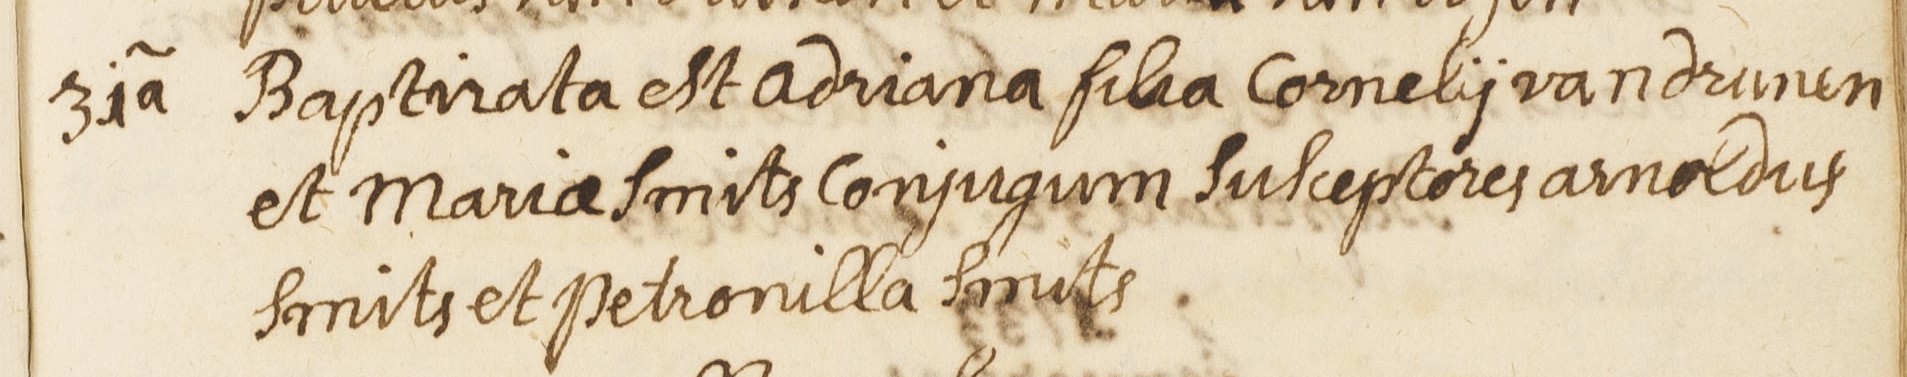 31ã Baptizata est Adriana filia Cornelij van drunen
et Mariæ Smits Conjugum Susceptores arnoldus
Smits et petronilla Smits